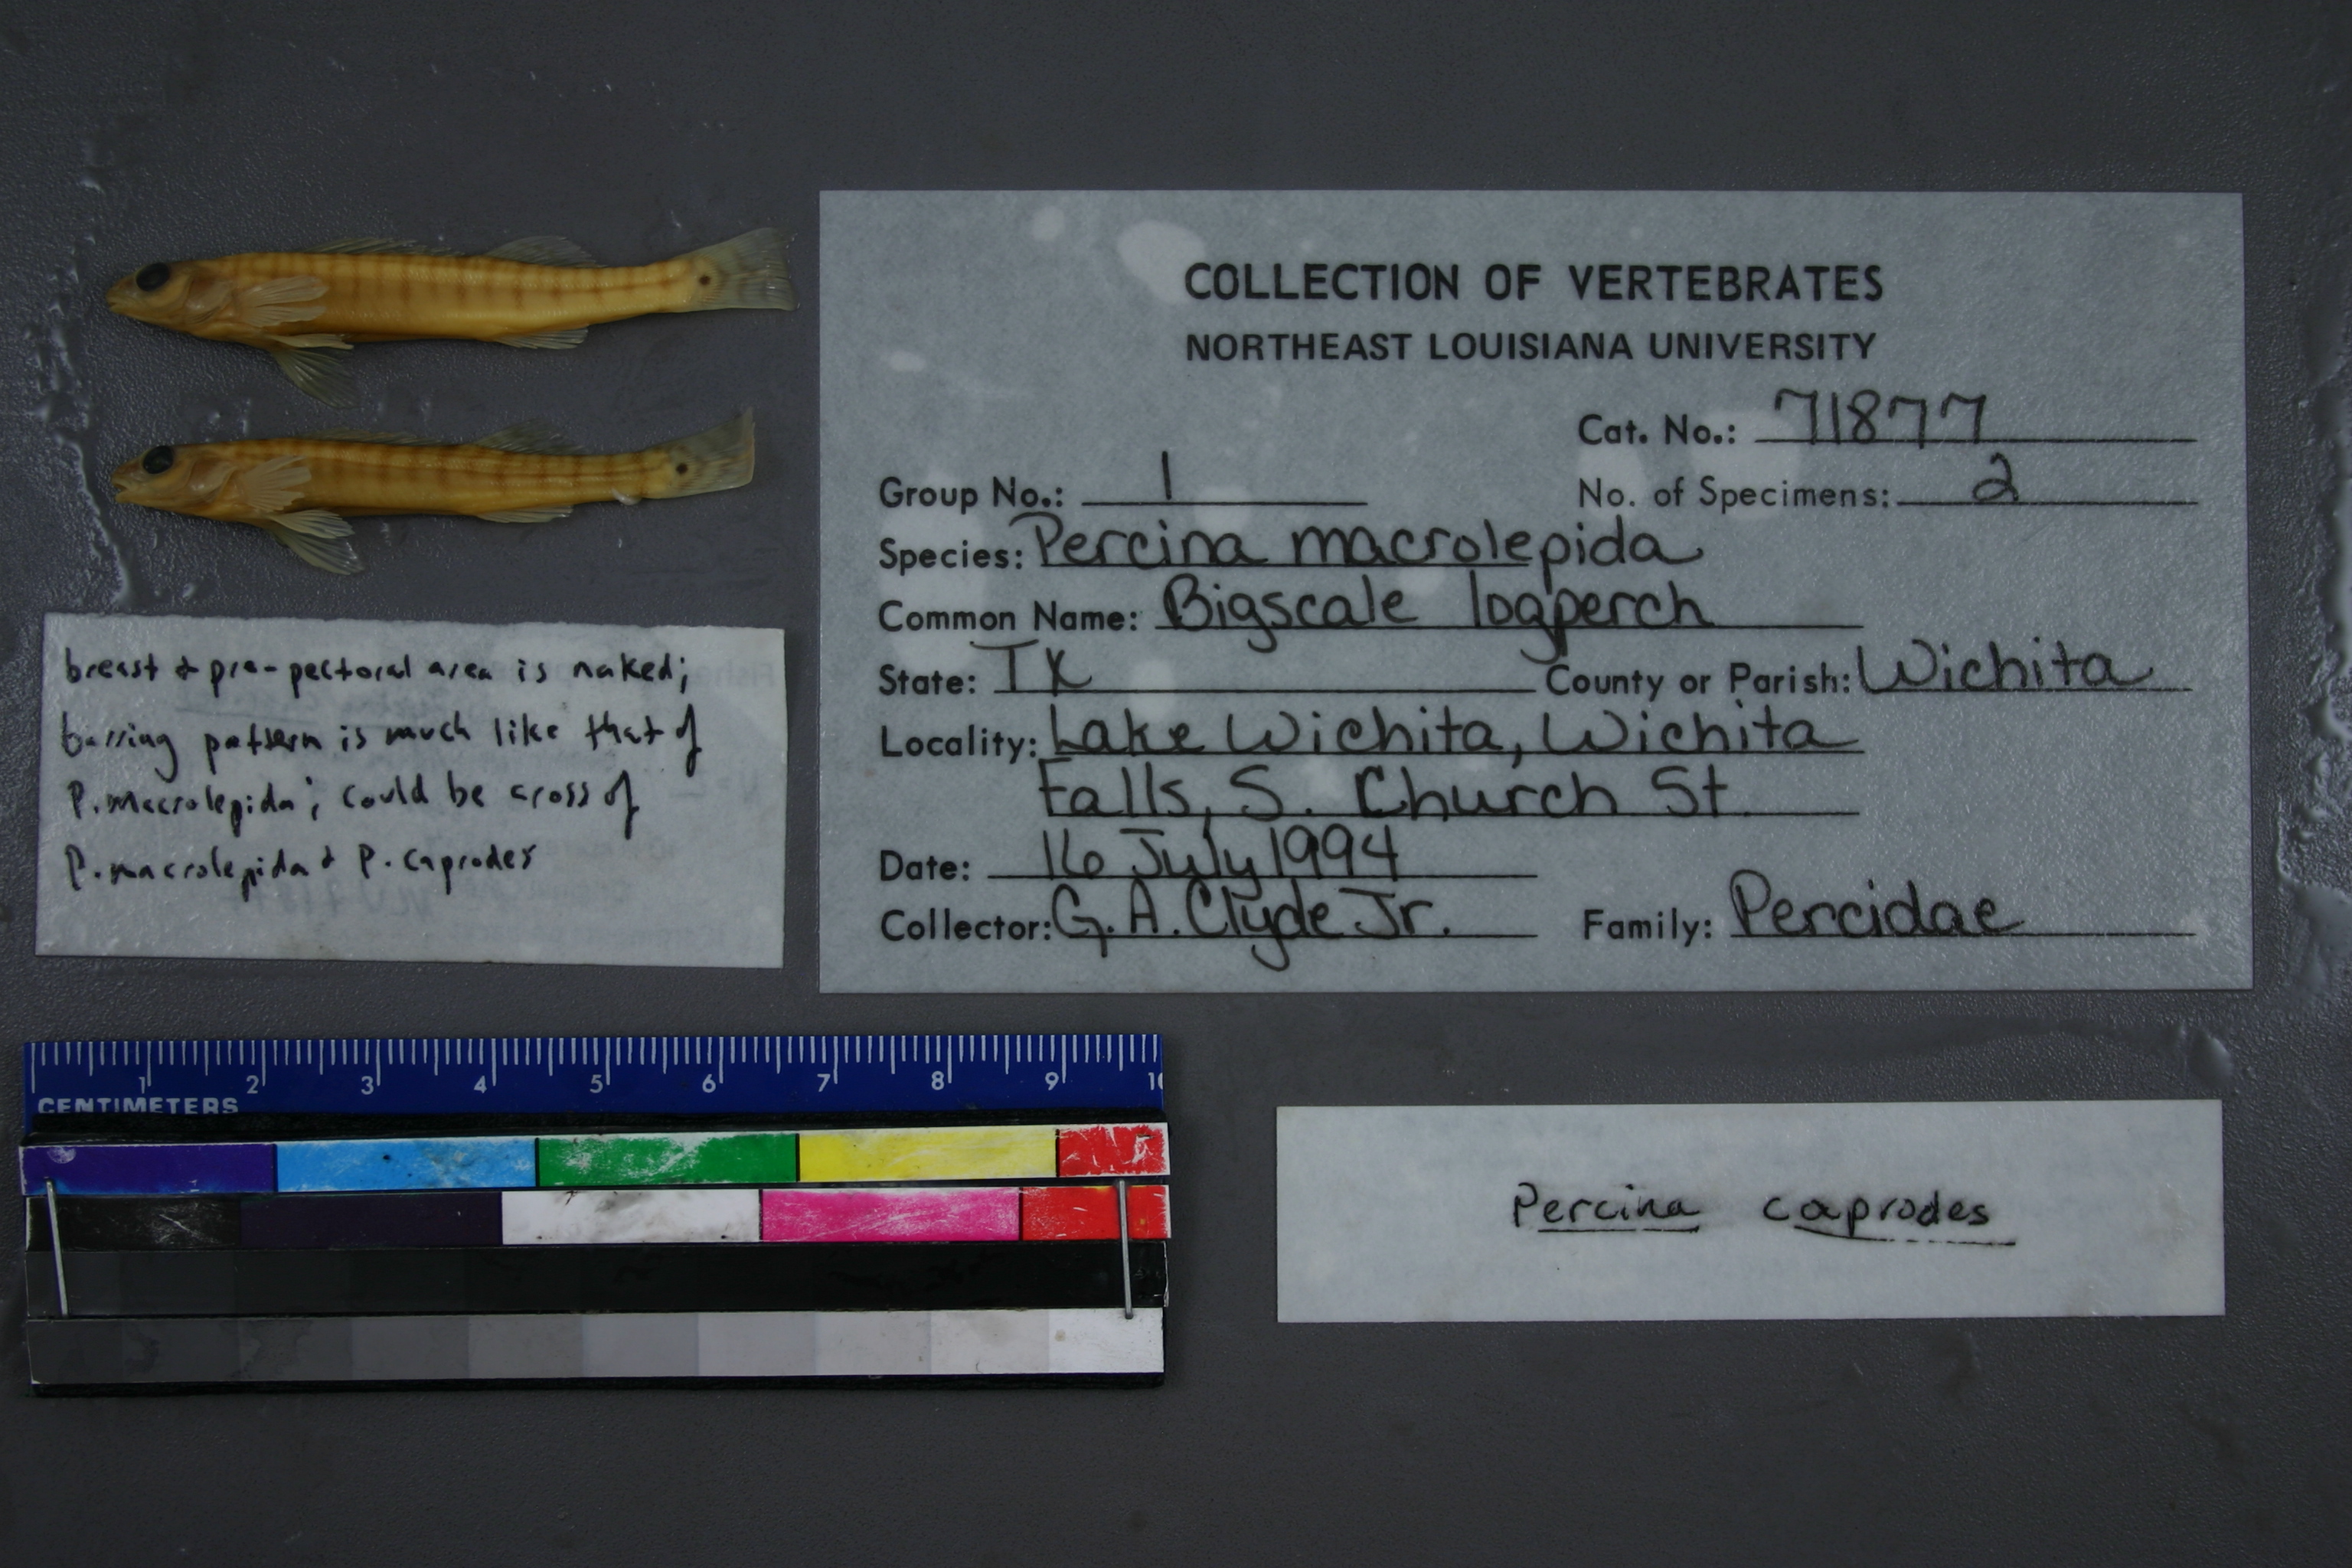 COLLECTION OF VERTEBRATES
NORTHEAST LOUISIANA UNIVERSITY
Cat. No.: 71877
Group No.: 1 No. of Specimens: 2
Species: Percina macrolepida
Common Name: Bigscale logperch
State: TX County or Parish: Wichita
Locality: Lake Wichita, Wichita
Falls, S. Church St.
Date: 16 July 1994
Collector: G. A. Clyde Jr. Family: Percidae
breast & pre-pectoral area is naked;
barring pattern is much like that of
P. macrolepida; could be cross of
P. macrolepida & P. caprodes
1 2 3 4 5 6 7 8 9 10
CENTIMETERS
Percina caprodes